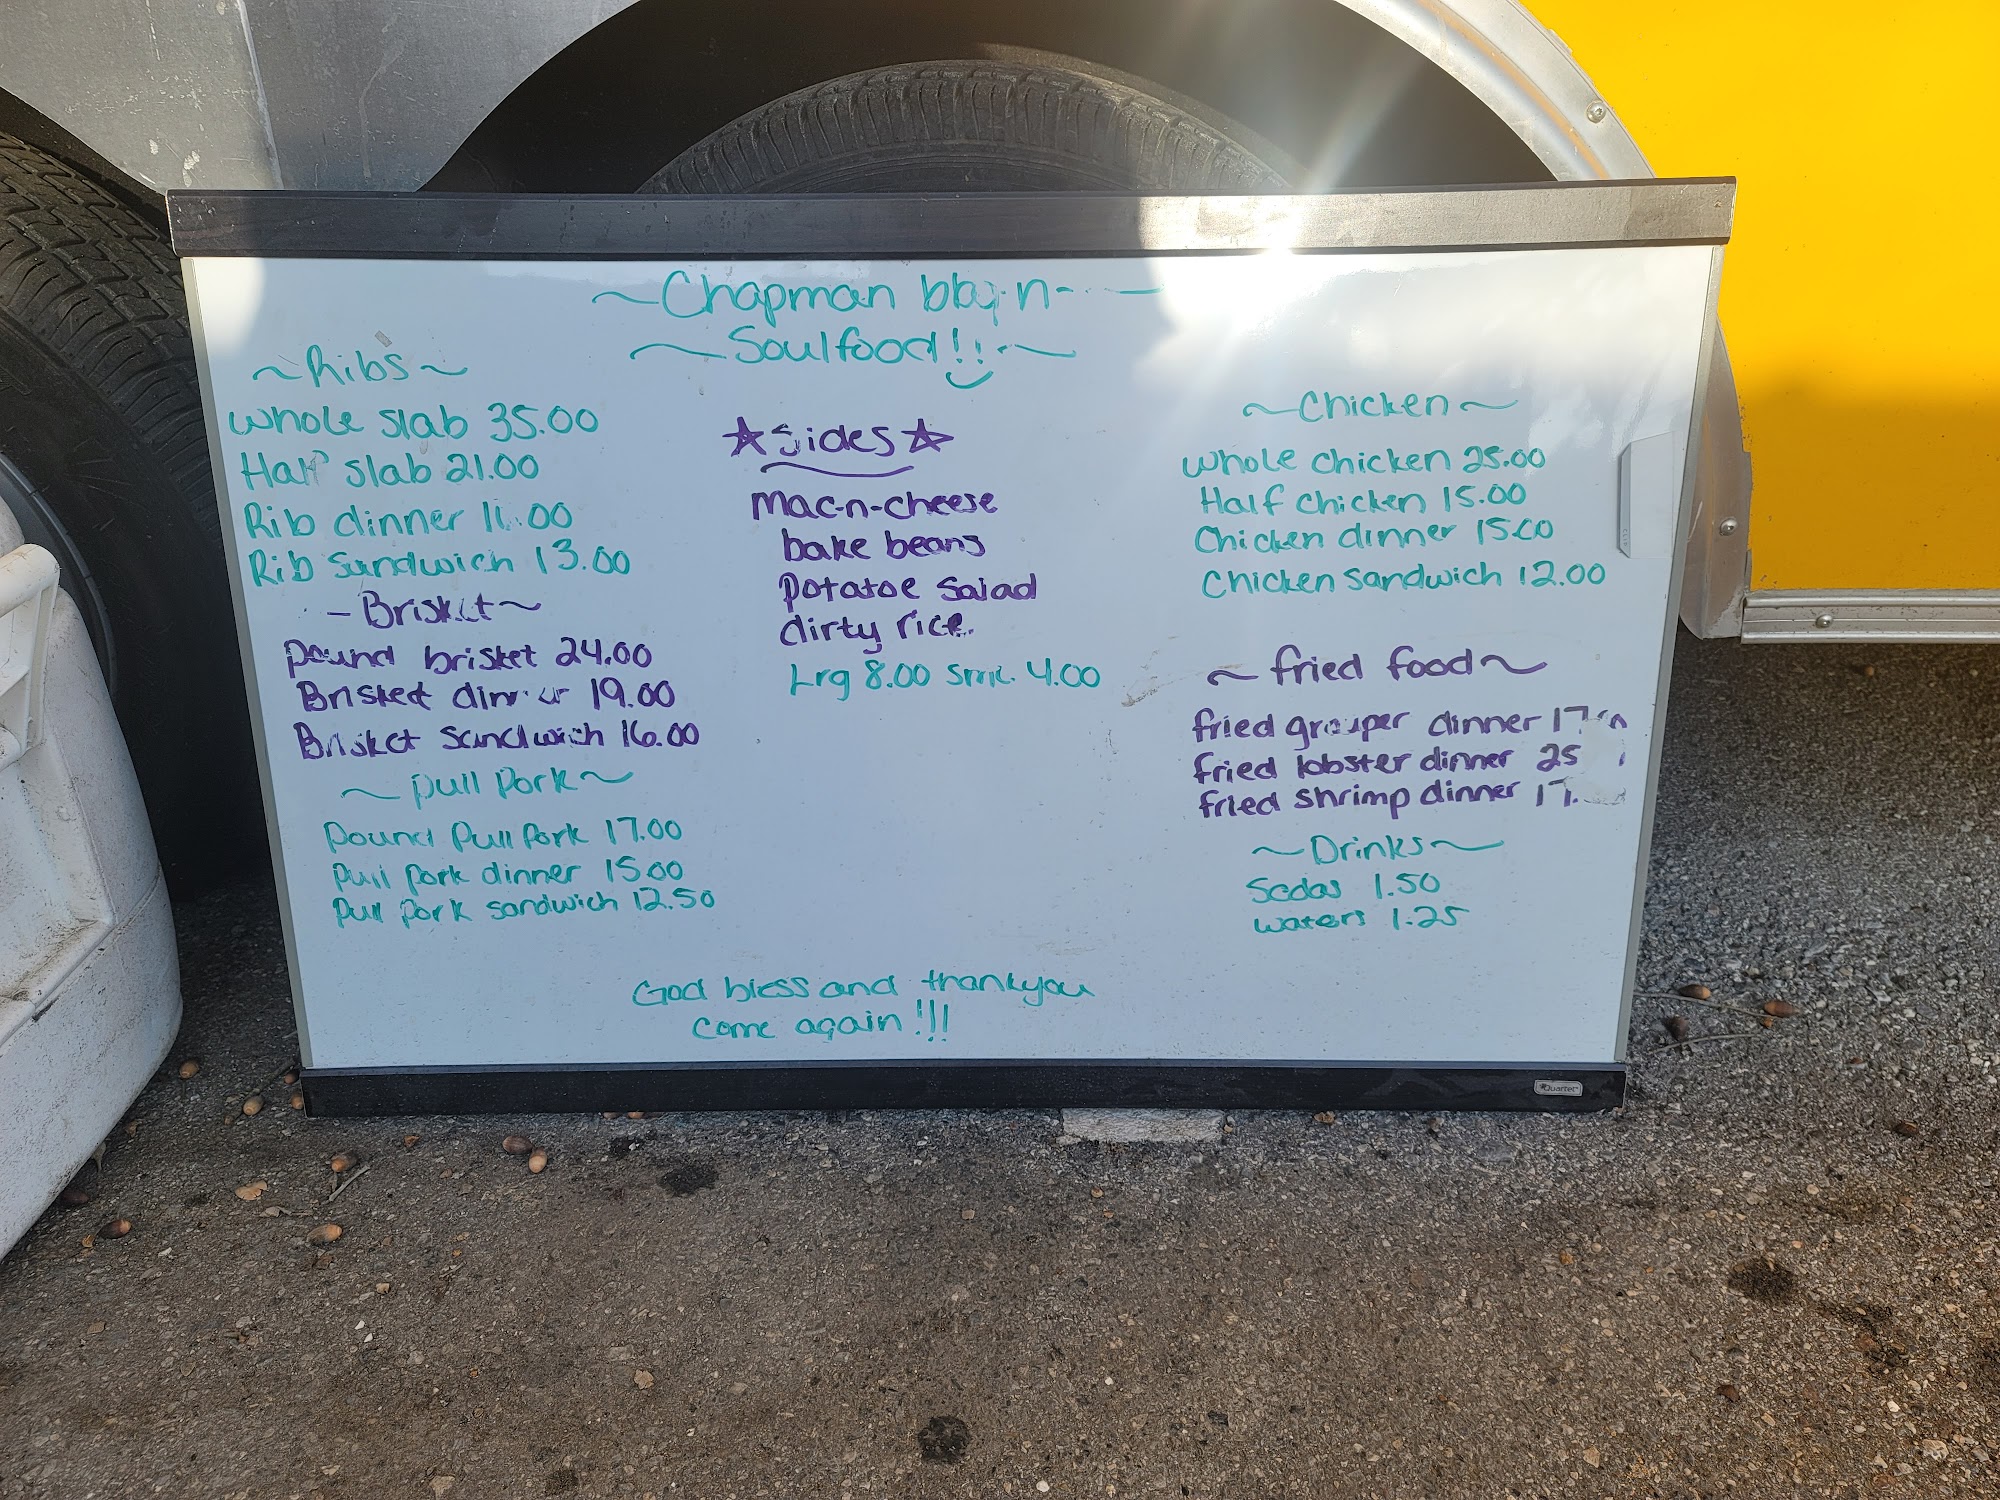 ~Chapman bbq-n-
~Soulfood!!~
~Ribs~
whole slab 35.00
Half slab 21.00
Rib dinner
Rib Sandwich 13.00
-Brisket~
pound brisket 24.00
Brisket dinner 19.00
Brisket sandwich 16.00
~pull pork~
pound Pull Pork 17.00
Pull Pork dinner 15.00
Pull Pork sandwich 12.50
☆Sides☆
mac-n-cheese
bake beans
potatoe salad
dirty rice
Lrg 8.00 sml. 4.00
~Chicken~
whole chicken 25.00
Half chicken 15.00
Chicken dinner 15.00
Chicken sandwich 12.00
~fried food~
fried grouper dinner 17
fried lobster dinner 25
fried shrimp dinner 17.
~Drinks~
Sodas 1.50
waters 1.25
God bless and thankyou
come again!!!
Quartet